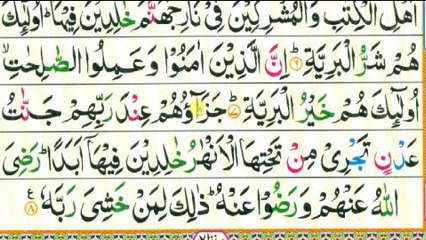 اَهْلِ الْكِتٰبِ وَالْمُشْرِكِيْنَ فِيْ نَارِ جَهَنَّمَ خٰلِدِيْنَ فِيْهَا ؕ اُولٰٓئِكَ
هُمْ شَرُّ الْبَرِيَّةِ ؕ‏ ۶ اِنَّ الَّذِيْنَ اٰمَنُوْا وَعَمِلُوا الصّٰلِحٰتِ ۙ
اُولٰٓئِكَ هُمْ خَيْرُ الْبَرِيَّةِ ؕ‏ ۷ جَزَآؤُهُمْ عِنْدَ رَبِّهِمْ جَنّٰتُ
عَدْنٍ تَجْرِيْ مِنْ تَحْتِهَا الْاَنْهٰرُ خٰلِدِيْنَ فِيْهَاۤ اَبَدًا ؕ رَضِيَ
اللّٰهُ عَنْهُمْ وَرَضُوْا عَنْهُ ؕ ذٰلِكَ لِمَنْ خَشِيَ رَبَّهٗ ۸ ع